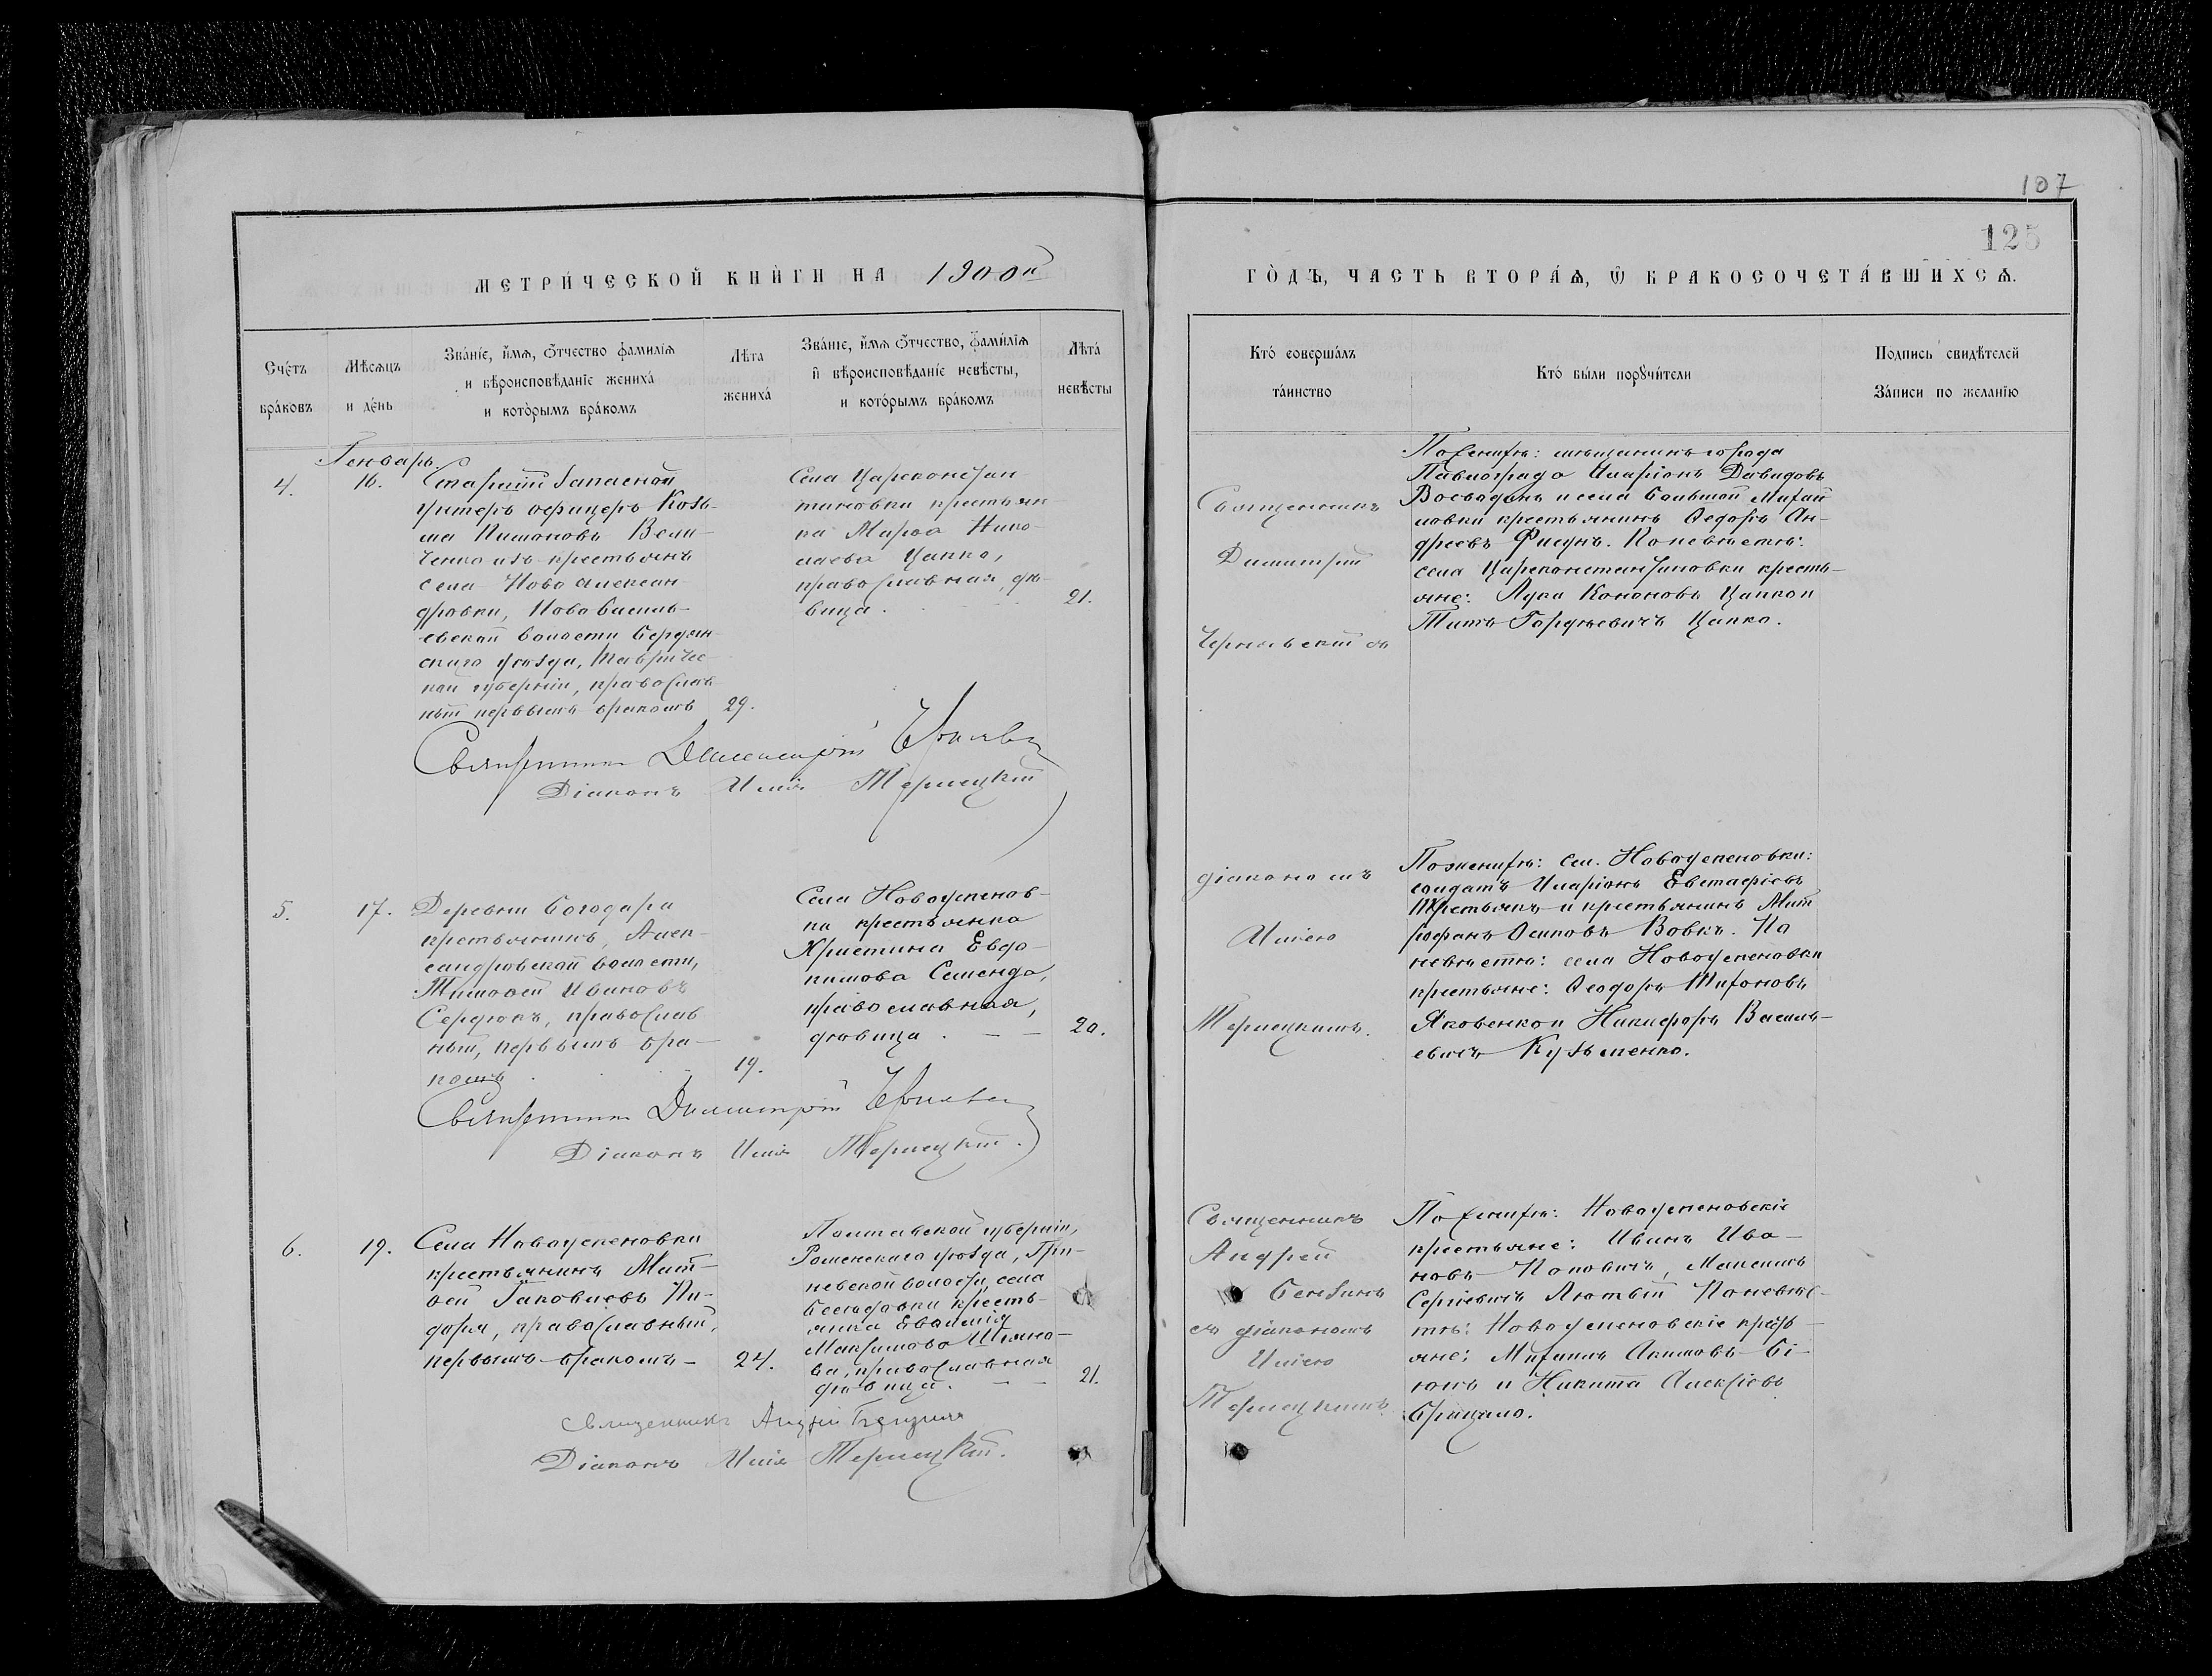 107
125
МЕТРИ́ЧЕСКОЙ КНИ́ГИ НА 1900й
ГО́ДЪ, ЧАСТЬ ВТОРА́Ѧ, Ѡ БРАКОСОЧЕТА́ВШИХСѦ.
Сче́тъ
бра́ковъ
Мѣ́сѧцъ
и де́нь
Зва́нїе, и́мѧ, ѻ́тчество фами́лїѧ
и вѣроисповѣ́данїе жениха́
и кото́рымъ бра́комъ
Лѣта
жениха́
Зва́нїе, и́мѧ ѻ́тчество, фами́лїѧ
и҆ вѣроисповѣ́данїе невѣ́сты,
и кото́рымъ бра́комъ
Лѣта́
невѣ́сты
Кто́ соверша́лъ
та́инство
Кто́ бы́ли порꙋчи́тели
Подпись свидѣ́телей
За́писи по жела́нїю
Генварь
4.
16.
Старшій запасной
унтеръ офицеръ Козь-
ма Пимоновъ Вели-
ченко изъ крестьянъ
села Ново Алексан-
дровки, Ново Василь-
евской волости Бердян-
скаго уѣзда, Тавриче-
кой губерніи, православ
ный первымъ бракомъ
29.
Села Цареконстан
тиновки крестьян
ка Марѳа Нико-
лаева Цапко,
православная, дѣ-
вица.
21.
Священникъ
Димитрій
Чернявскій съ
По женихѣ: мѣщанинъ города
Павлограда Иларіонъ Давидовъ
Воевадинъ и села Большой Михай
ловки крестьянинъ Ѳедоръ Ан-
дреевъ Фисунъ. По невѣстѣ:
села Цареконстантиновки кресть-
яне: Лука Кононовъ Цапко и
Титъ Гордѣевичъ Цапко.
Священникъ Димитрій Чернявскій
Діаконъ Илія Терлецкій
5.
17.
Деревни Богодара
крестьянинъ, Алек-
сандровской волости,
Тимоѳей Ивановъ
Сердюкъ, православ
ный, первымъ бра-
комъ
19.
Села Новоуспенов-
ки крестьянка
Христина Евдо-
кимова Семенда,
православная,
дѣвица.
20.
діакономъ
Иліею
Терлецкимъ.
По женихѣ: сел. Новоуспеновки:
солдатъ Иларіонъ Евстафіевъ
Третьякъ и крестьянинъ Мит
рофанъ Осиповъ Вовкъ. По
невѣстѣ: села Новоуспеновки
крестьяне: Ѳеодоръ Тихоновъ
Яковенко и Никифоръ Василь-
евичъ Кузьменко.
Священникъ Димитрій Чернявскій
Діаконъ Илія Терлецкій.
6.
19.
Села Новоуспеновки
крестьянинъ Мат-
ѳей Іаковлевъ Пи-
доря, православный,
первымъ бракомъ
24.
Полтавской губерніи,
Роменскаго уѣзда, Грі-
невской волости, села
кресть-
янка Евѳимія
Максимова
ва, православная
дѣвица.
21.
Священникъ
Андрей
Бензинъ
съ діакономъ
Иліею
Терлецкимъ.
По женихѣ: Новоуспеновскіе
крестьяне: Иванъ Ива-
новъ Поповичъ, Максимъ
Сергіевичъ Лютый По невѣс-
тѣ: Новоуспеновскіе крест-
яне: Михаилъ Акимовъ Бі-
и Никита Алексіевъ
Брицына.
Священникъ Андрей
Діаконъ Илія Терлецкій.